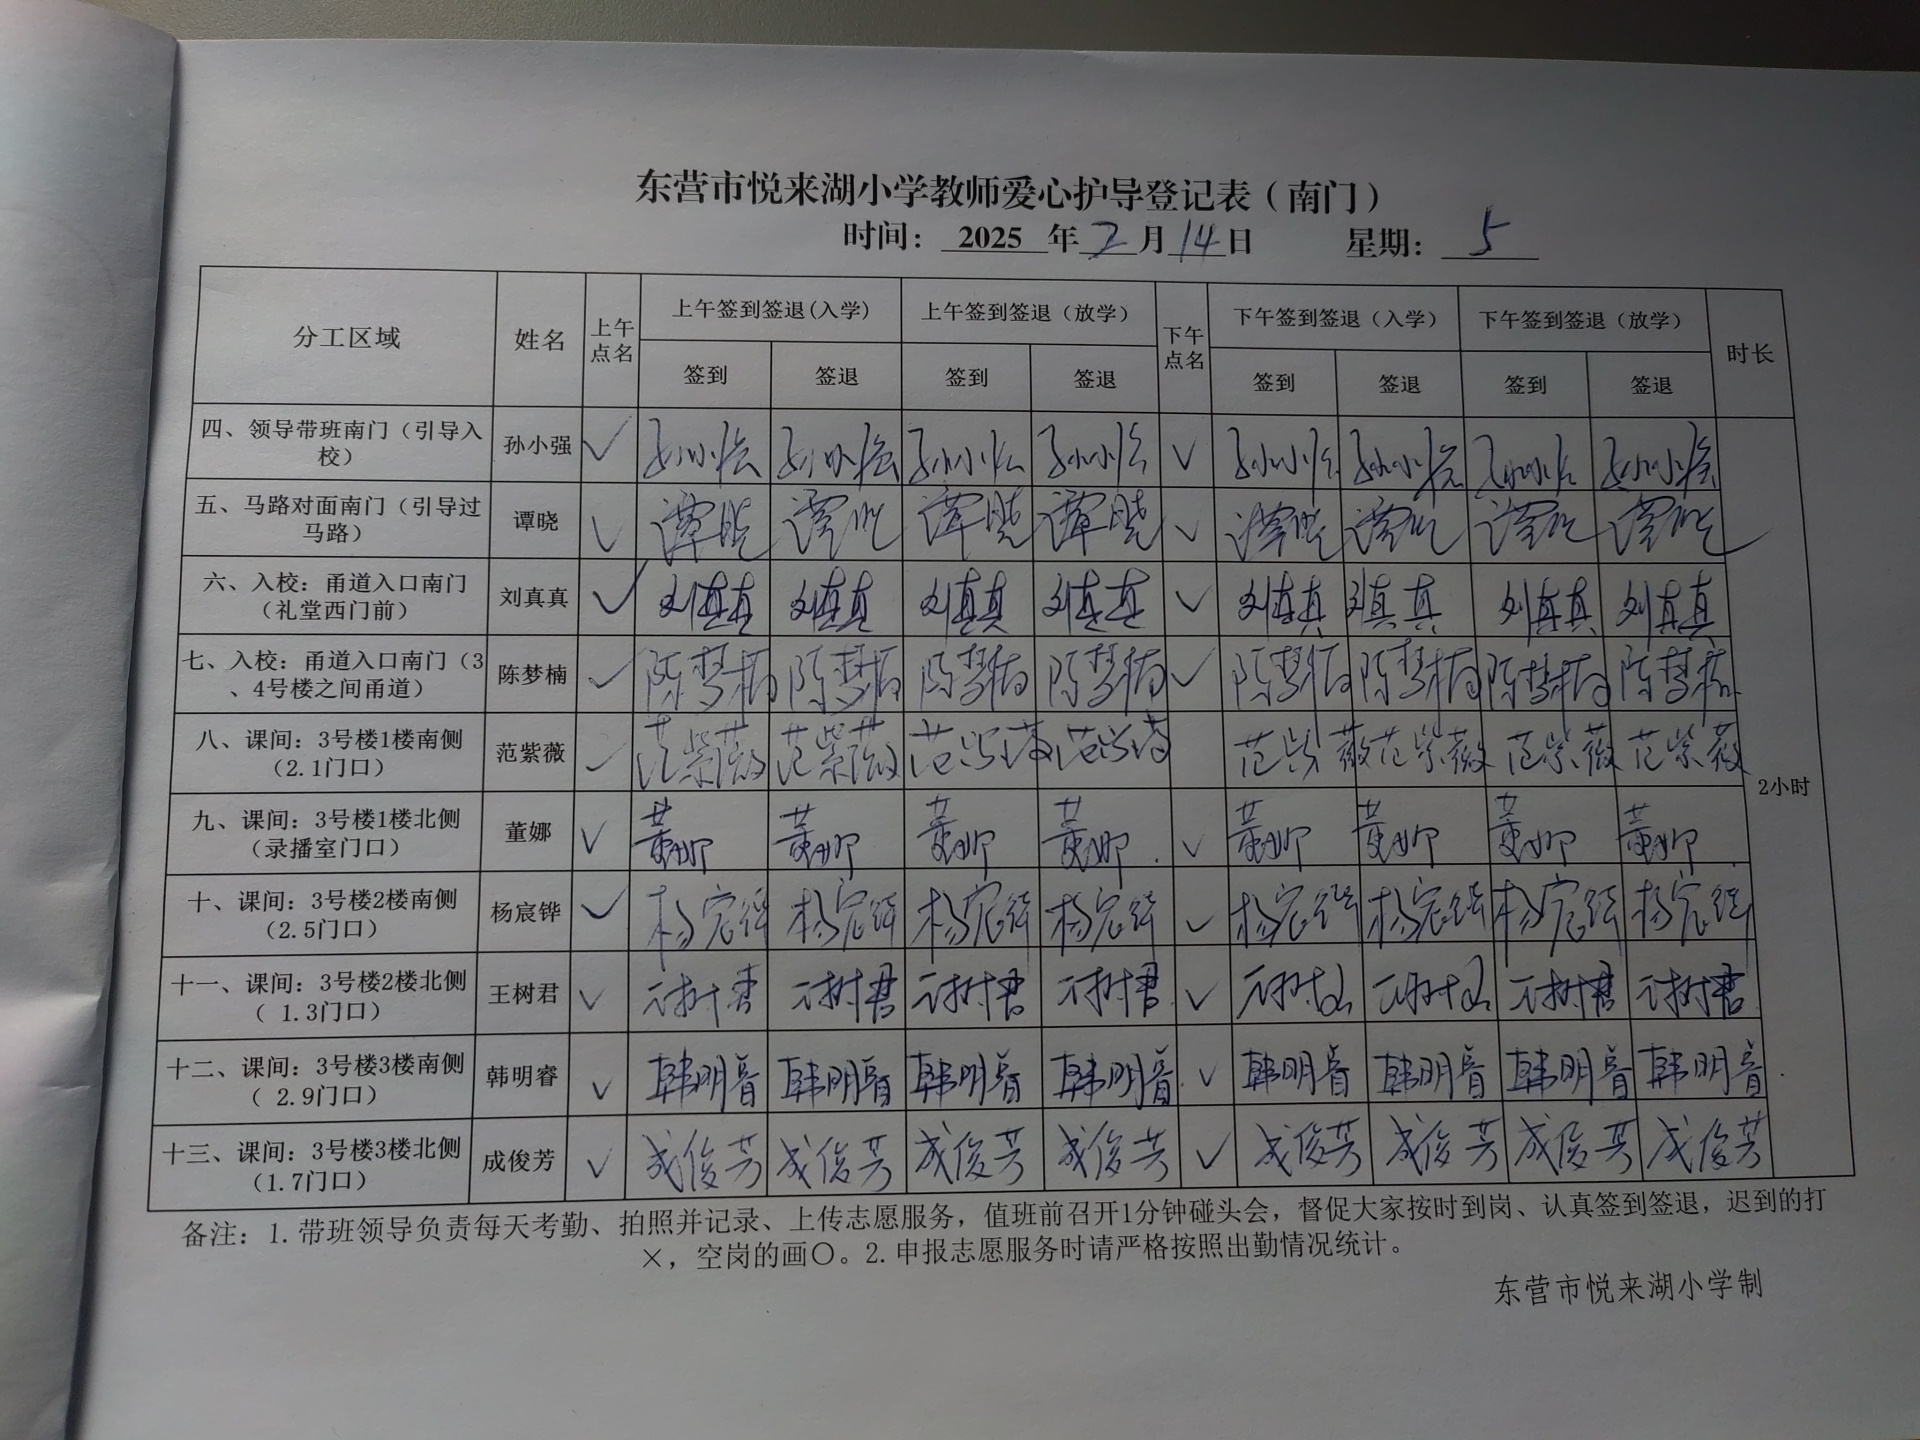 东营市悦来湖小学教师爱心护导登记表（南门）
时间： 2025 年 2 月 14 日 星期： 5
分工区域 姓名 上午点名 上午签到签退(入学) 上午签到签退（放学） 下午点名 下午签到签退（入学） 下午签到签退（放学） 时长
签到 签退 签到 签退 签到 签退 签到 签退
四、领导带班南门（引导入校） 孙小强 ✓ 孙小强 孙小强 孙小强 孙小强 ✓ 孙小强 孙小强 孙小强 孙小强
五、马路对面南门（引导过马路） 谭晓 ✓ 谭晓 谭晓 谭晓 谭晓 ✓ 谭晓 谭晓 谭晓 谭晓
六、入校：甬道入口南门（礼堂西门前） 刘真真 ✓ 刘真真 刘真真 刘真真 刘真真 ✓ 刘真真 刘真真 刘真真 刘真真
七、入校：甬道入口南门（3、4号楼之间甬道） 陈梦楠 ✓ 陈梦楠 陈梦楠 陈梦楠 陈梦楠 ✓ 陈梦楠 陈梦楠 陈梦楠 陈梦楠
八、课间：3号楼1楼南侧（2.1门口） 范紫薇 ✓ 范紫薇 范紫薇 范紫薇 范紫薇 范紫薇 范紫薇 范紫薇 范紫薇
2小时
九、课间：3号楼1楼北侧（录播室门口） 董娜 ✓ 董娜 董娜 董娜 董娜 ✓ 董娜 董娜 董娜 董娜
十、课间：3号楼2楼南侧（2.5门口） 杨宸铧 ✓ 杨宸铧 杨宸铧 杨宸铧 杨宸铧 ✓ 杨宸铧 杨宸铧 杨宸铧 杨宸铧
十一、课间：3号楼2楼北侧（ 1.3门口） 王树君 ✓ 王树君 王树君 王树君 王树君 ✓ 王树君 王树君 王树君 王树君
十二、课间：3号楼3楼南侧（ 2.9门口） 韩明睿 ✓ 韩明睿 韩明睿 韩明睿 韩明睿 ✓ 韩明睿 韩明睿 韩明睿 韩明睿
十三、课间：3号楼3楼北侧（1.7门口） 成俊芳 ✓ 成俊芳 成俊芳 成俊芳 成俊芳 ✓ 成俊芳 成俊芳 成俊芳 成俊芳
备注：1.带班领导负责每天考勤、拍照并记录、上传志愿服务，值班前召开1分钟碰头会，督促大家按时到岗、认真签到签退，迟到的打
×，空岗的画〇。2.申报志愿服务时请严格按照出勤情况统计。
东营市悦来湖小学制